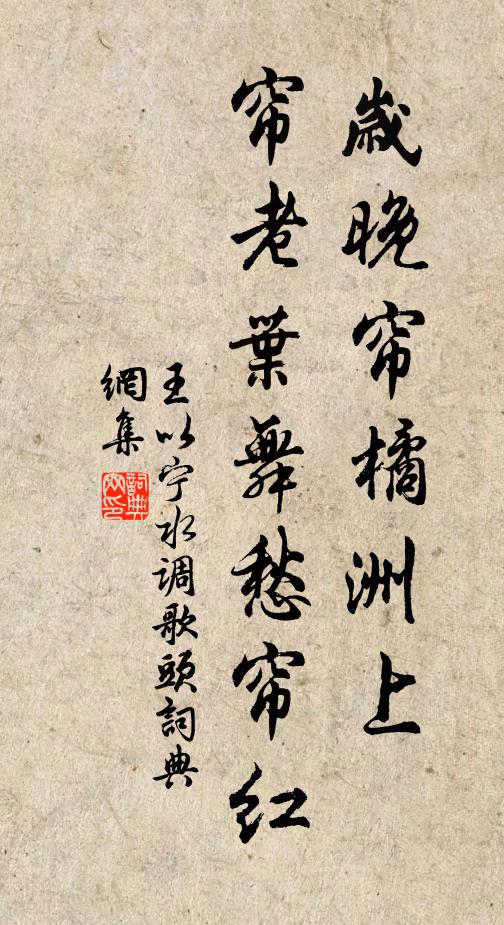 歲晚帘橘洲上
帘老葉舞愁帘红
王以宁水调歌頭詞典
網集
詞典
网印